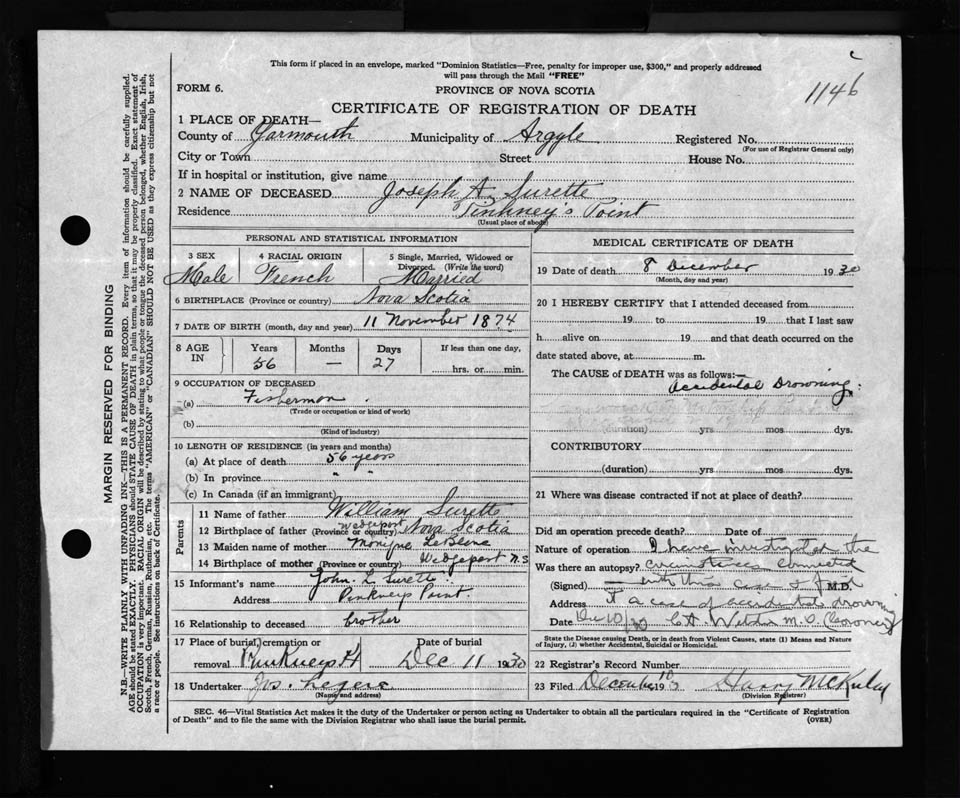 This form if placed in an envelope, marked "Dominion Statistics—Free, penalty for improper use, $300," and properly addressed
will pass through the Mail "FREE"
FORM 6.
PROVINCE OF NOVA SCOTIA
1146
CERTIFICATE OF REGISTRATION OF DEATH
1 PLACE OF DEATH—
County of Yarmouth Municipality of Argyle Registered No.
(For use of Registrar General only)
City or Town Street House No.
If in hospital or institution, give name
2 NAME OF DECEASED Joseph A. Surette
Residence Pinkney's Point
(Usual place of abode)
PERSONAL AND STATISTICAL INFORMATION
3 SEX 4 RACIAL ORIGIN 5 Single, Married, Widowed or
Divorced. (Write the word)
Male French Married
6 BIRTHPLACE (Province or country) Nova Scotia
7 DATE OF BIRTH (month, day and year) 11 November 1874
8 AGE IN Years Months Days If less than one day,
56 — 27 hrs. or min.
9 OCCUPATION OF DECEASED
(a) Fisherman
(Trade or occupation or kind of work)
(b)
(Kind of industry)
10 LENGTH OF RESIDENCE (in years and months)
(a) At place of death 56 years
(b) In province " "
(c) In Canada (if an immigrant)
Parents
11 Name of father William Surette
12 Birthplace of father (Province or country) Wedgeport Nova Scotia
13 Maiden name of mother Monique LeBlanc
14 Birthplace of mother (Province or country) Wedgeport N.S
15 Informant's name John L Surette
Address Pinkneys Point
16 Relationship to deceased brother
17 Place of burial, cremation or Date of burial
removal Pinkneys Pt Dec 11 1930
18 Undertaker Jos. Legere
(Name and address)
MEDICAL CERTIFICATE OF DEATH
19 Date of death 8 December 1930
(Month, day and year)
20 I HEREBY CERTIFY that I attended deceased from
19 to 19 that I last saw
h alive on 19 and that death occurred on the
date stated above, at m.
The CAUSE of DEATH was as follows:—
Accidental Drowning.
(duration) yrs. mos. dys.
CONTRIBUTORY
(duration) yrs. mos. dys.
21 Where was disease contracted if not at place of death?
Did an operation precede death? Date of
Nature of operation I have investigated the
Was there an autopsy? circumstances connected
(Signed) with this case & find M.D.
Address it a case of accidental drowning
Date Dec 10/30 M.D. (Coroner)
State the Disease causing Death, or in death from Violent Causes, state (1) Means and Nature
of Injury, (2) whether Accidental, Suicidal or Homicidal.
22 Registrar's Record Number
23 Filed December 10 193 Harry McKinlay
(Division Registrar)
SEC. 46—Vital Statistics Act makes it the duty of the Undertaker or person acting as Undertaker to obtain all the particulars required in the "Certificate of Registration
of Death" and to file the same with the Division Registrar who shall issue the burial permit. (OVER)
MARGIN RESERVED FOR BINDING
N.B.—WRITE PLAINLY WITH UNFADING INK—THIS IS A PERMANENT RECORD. Every item of information should be carefully supplied.
AGE should be stated EXACTLY. PHYSICIANS should STATE CAUSE OF DEATH in plain terms, so that it may be properly classified. Exact statement of
OCCUPATION is very important. RACIAL ORIGIN will be described by stating to what people or tongue the deceased person belonged, whether English, Irish,
Scotch, French, German, Russian, Ruthenian, etc. The terms "AMERICAN" or "CANADIAN" SHOULD NOT BE USED as they express citizenship but not
a race or people. See instructions on back of Certificate.